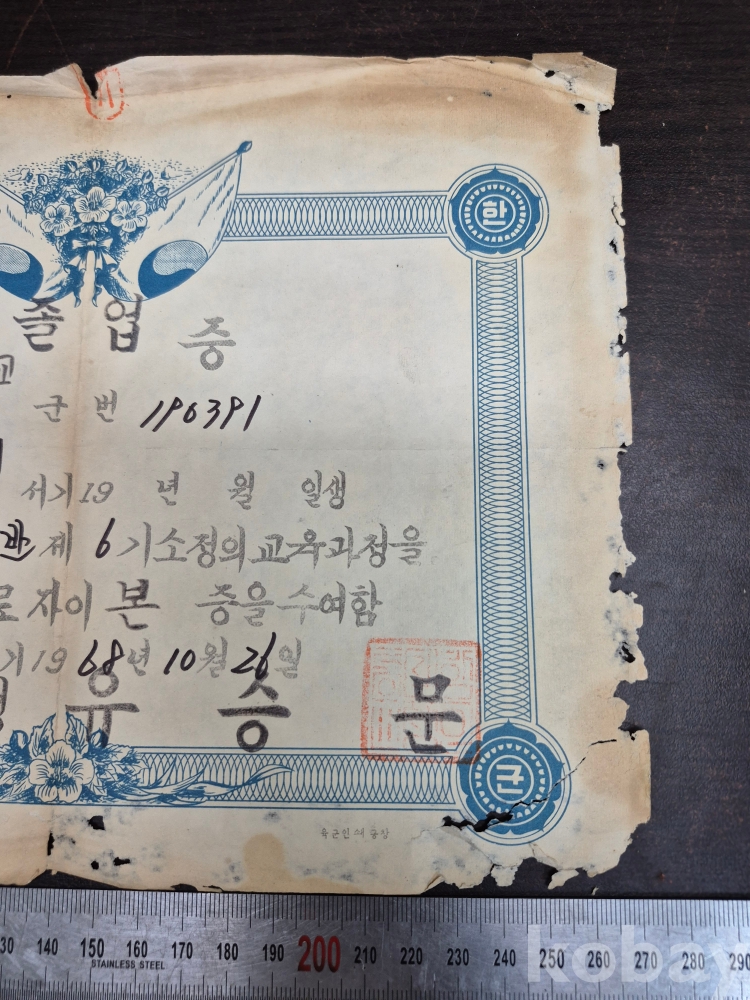 한
졸 업 증
교
군 번 190391
서기 19 년 월 일생
관 제 6 기 소정의 교육과정을
료 자이 본 증을 수여함
기 19 68년 10월 26일
유 승 문
군
육군인쇄공창
130 140 150 160 170 180 190 200 210 220 230 240 250 260 270 280 290
STAINLESS STEEL
kobay